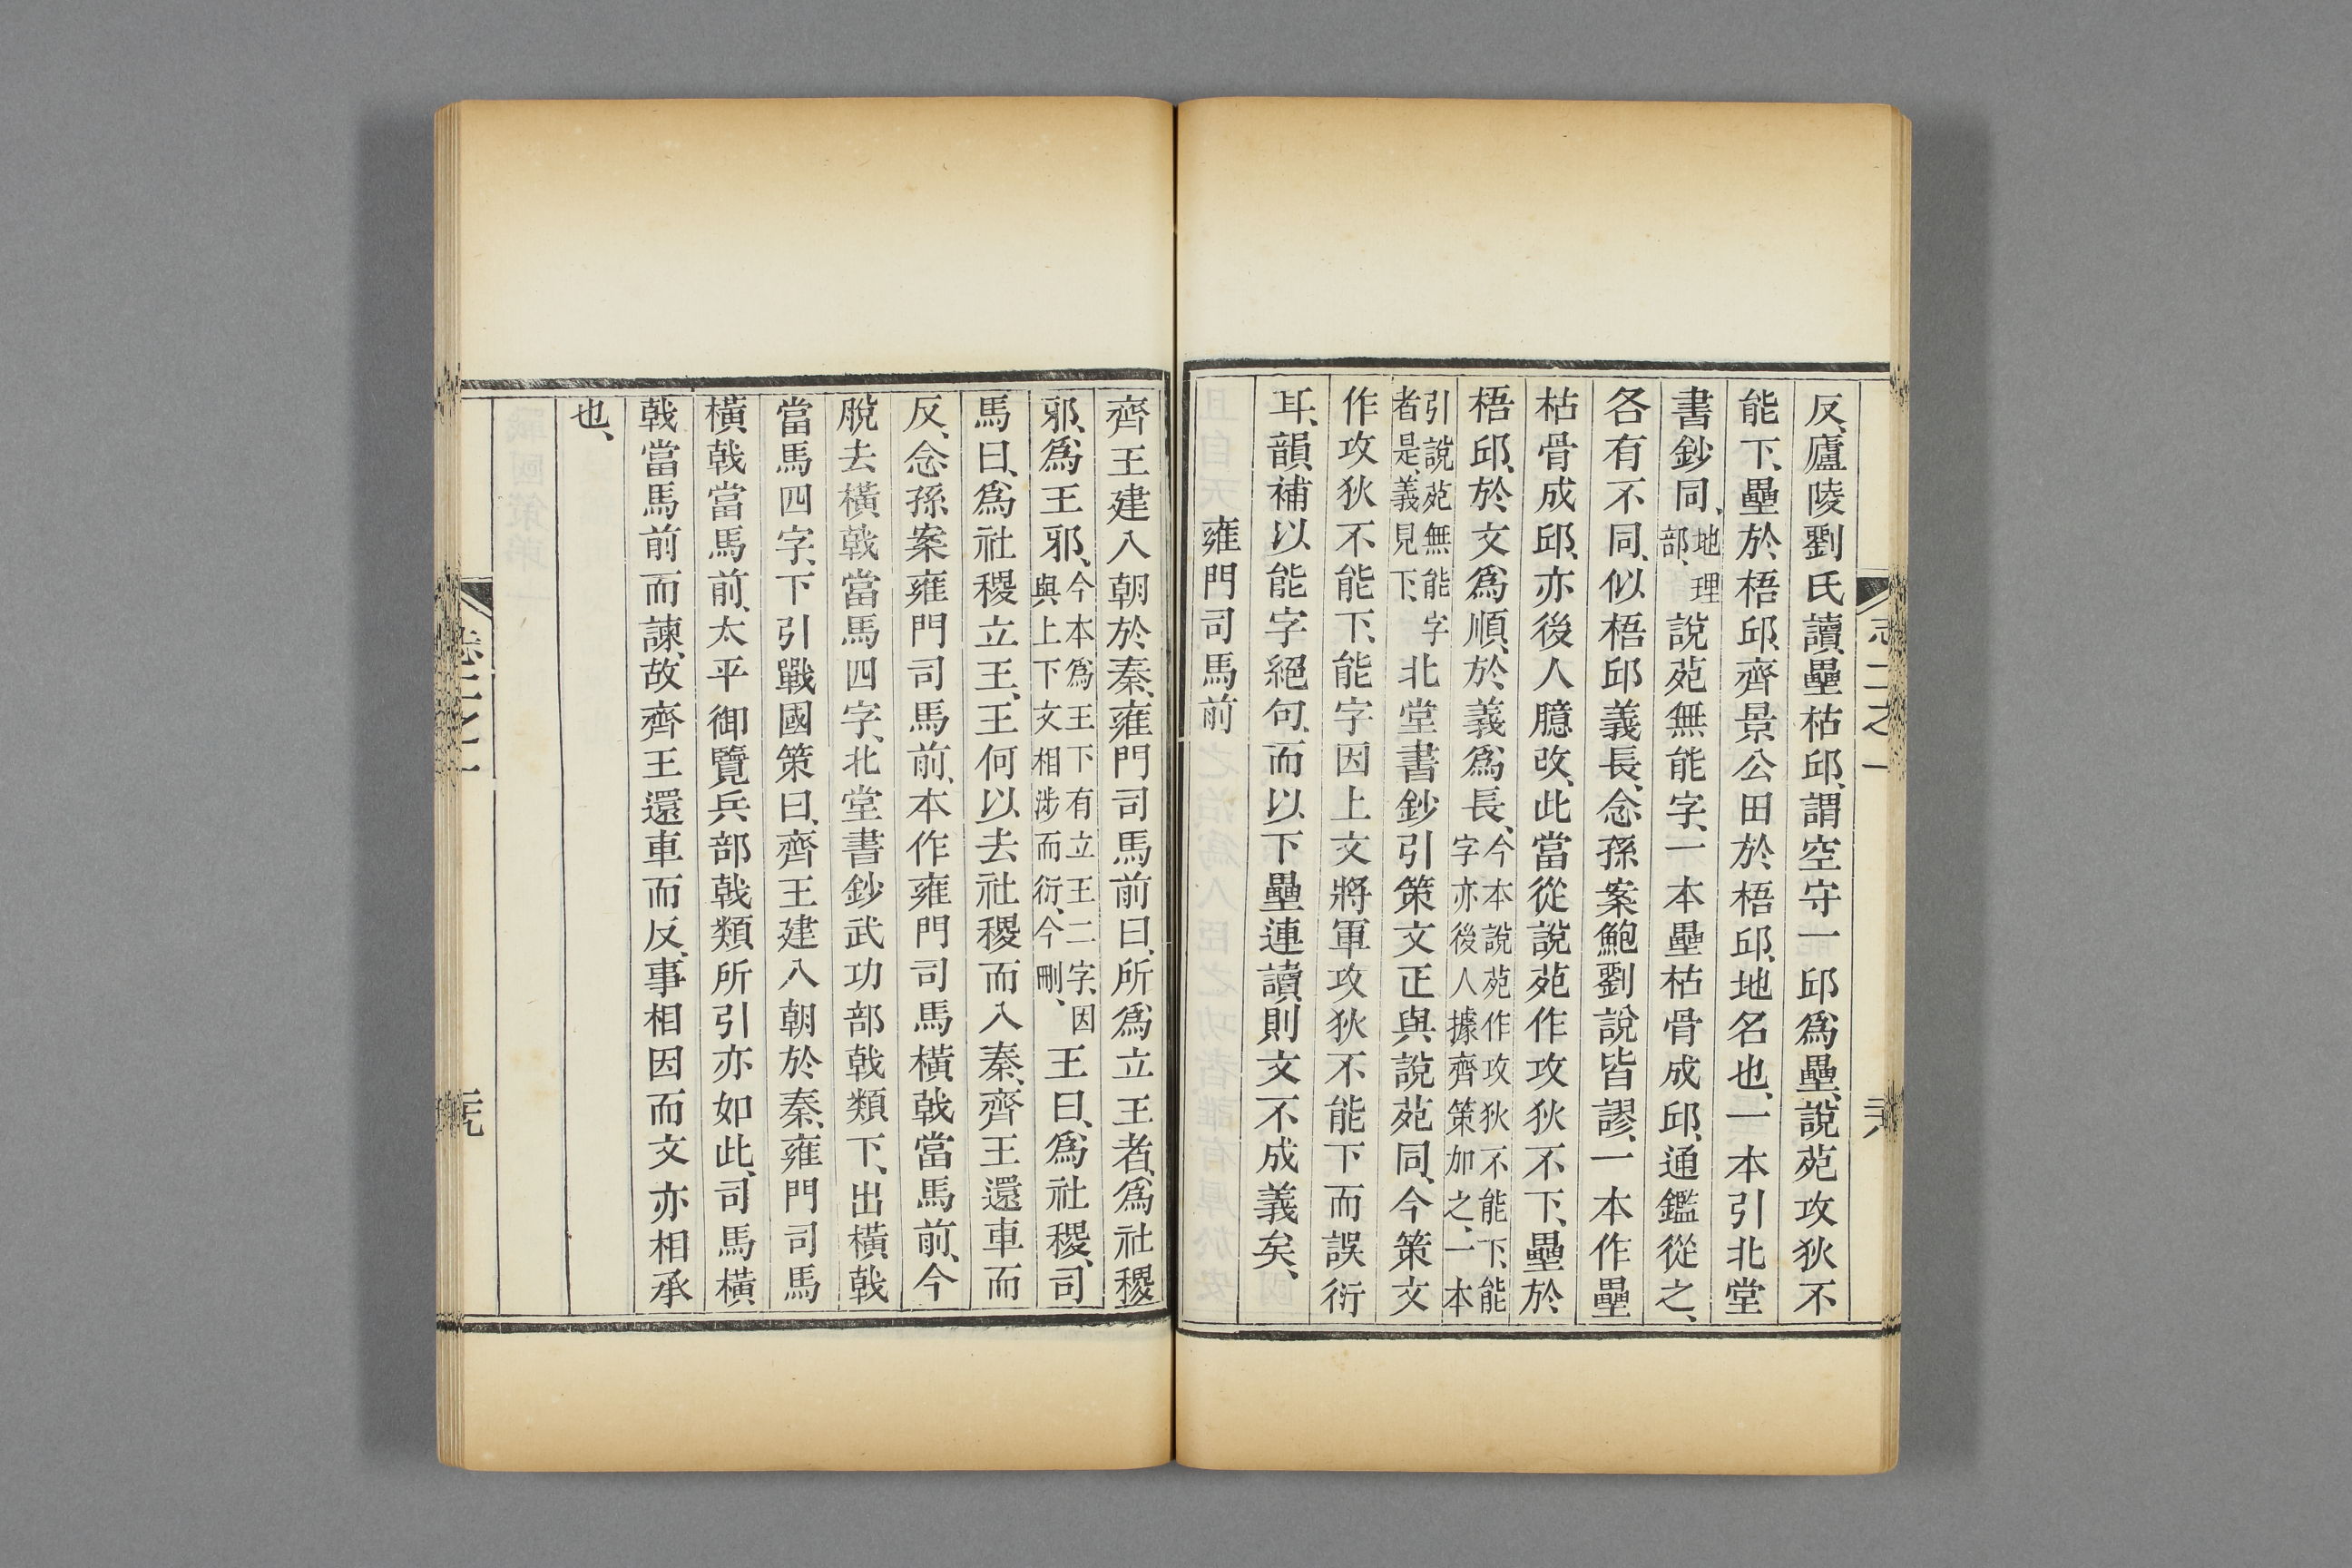 志二之一
反、廬陵劉氏讀壘枯邱、謂空守一邱爲壘、說苑攻狄不
能下、壘於梧邱、齊景公田於梧邱、地名也、一本引北堂
書鈔同、地理部、說苑無能字、一本壘枯骨成邱、通鑑從之、
各有不同、似梧邱義長、念孫案鮑劉說皆謬、一本作壘
枯骨成邱、亦後人臆改、此當從說苑作攻狄不下、壘於
梧邱、於文爲順、於義爲長、今本說苑作攻狄不能下、能字亦後人據齊策加之、一本
引說苑無能字者是、義見下、北堂書鈔引策文正與說苑同、今策文
作攻狄不能下、能字因上文將軍攻狄不能下而誤衍
耳、韻補以能字絕句、而以下壘連讀、則文不成義矣、
雍門司馬前
齊王建入朝於秦、雍門司馬前曰、所爲立王者、爲社稷
邪、爲王邪、今本爲王下有立王二字、因與上下文相涉而衍、今刪、王曰、爲社稷、司
馬曰、爲社稷立王、王何以去社稷而入秦、齊王還車而
反、念孫案雍門司馬前、本作雍門司馬橫戟當馬前、今
脫去橫戟當馬四字、北堂書鈔武功部戟類下、出橫戟
當馬四字、下引戰國策曰、齊王建入朝於秦、雍門司馬
橫戟當馬前、太平御覽兵部戟類所引亦如此、司馬橫
戟當馬前而諫、故齊王還車而反、事相因而文亦相承
也、